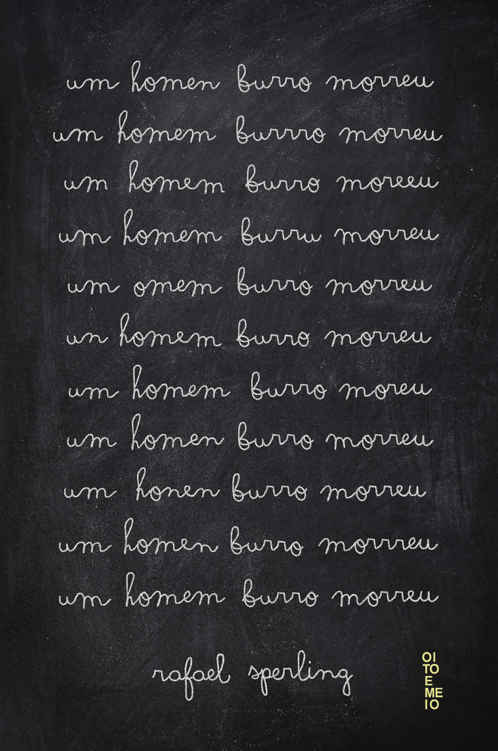 um homen burro morreu
um homem burrro morreu
um homem burro moreeu
um homem burru morreu
um omem burro morreu
un homem burro morreu
um homem burro moreu
um homen burro morreu
um honen burro morreu
um homen burro morrreu
um homem burro morreu
rafael sperling
OI
TO
E
ME
IO